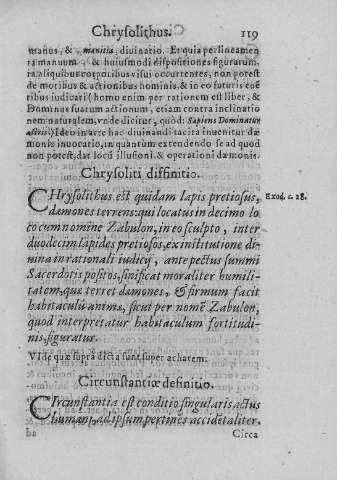 Chrysolithus. 119
manus, &, mantia, divinatio. Et quia per lineamen
ta manuum & huiusmodi dispositiones figurarum,
in aliquibus corporibus visui occurrentes, non potest
de moribus & actionibus hominis, & in eo futuris eue
tibus iudicari (homo enim per rationem est liber, &
Dominus suarum actionum, etiam contra inclinatio
nem naturalem, vnde dicitur, quòd: Sapiens Dominatur
astris.) Ideo in arte hac diuinandi tacita inuenitur dæ
monis inuocatio, in quantum extendendo se ad quod
non potest, dat locũ illusioni & operationi dæmonis.
Chrysoliti diffinitio.
CHrysolithus est quidam lapis pretiosus, Exod. c. 28.
dæmones terrens: qui locatus in decimo lo
co cum nomine Zabulon, in eo sculpto, inter
duodecim lapides pretiosos, ex institutione di
uina in rationali iudicij, ante pectus summi
Sacerdotis positos, sinificat moraliter humili-
tatem, quæ terret dæmones, & firmum facit
habitaculũ animæ, sicut per nomẽ Zabulon,
quod interpretatur habitaculum fortitudi-
nis, figuratur.
VIde quæ suprà dicta sunt, super achatem.
Circunstantiæ definitio.
CIrcunstantia est conditio singularis actus
humani, ad ipsum pertinẽs accidẽtaliter.
Circa